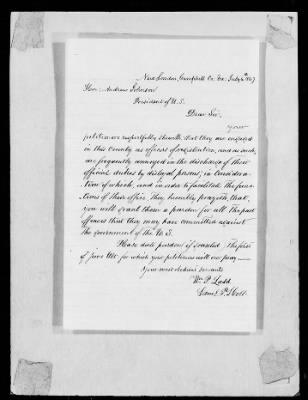 New London, Campbell Co. Va. July 6th 1867
Hon: Andrew Johnson
President of U.S.
Dear Sir,
your
petitioners respectfully sheweth that they are engaged
in this County as officers of registration, and as such,
are frequently annoyed in the discharge of their
official duties by disloyal persons, in consideration
tion of which, and in order to facilitate the func-
tions of their office, they humbly prayeth that,
you will grant them a pardon for all the past
offences that they may have committed against
the government of the U.S.
Please date pardons if granted the first
of June 1865 for which your petitioners will ever pray—
Your most obedient servants
Wm. P. Ladd